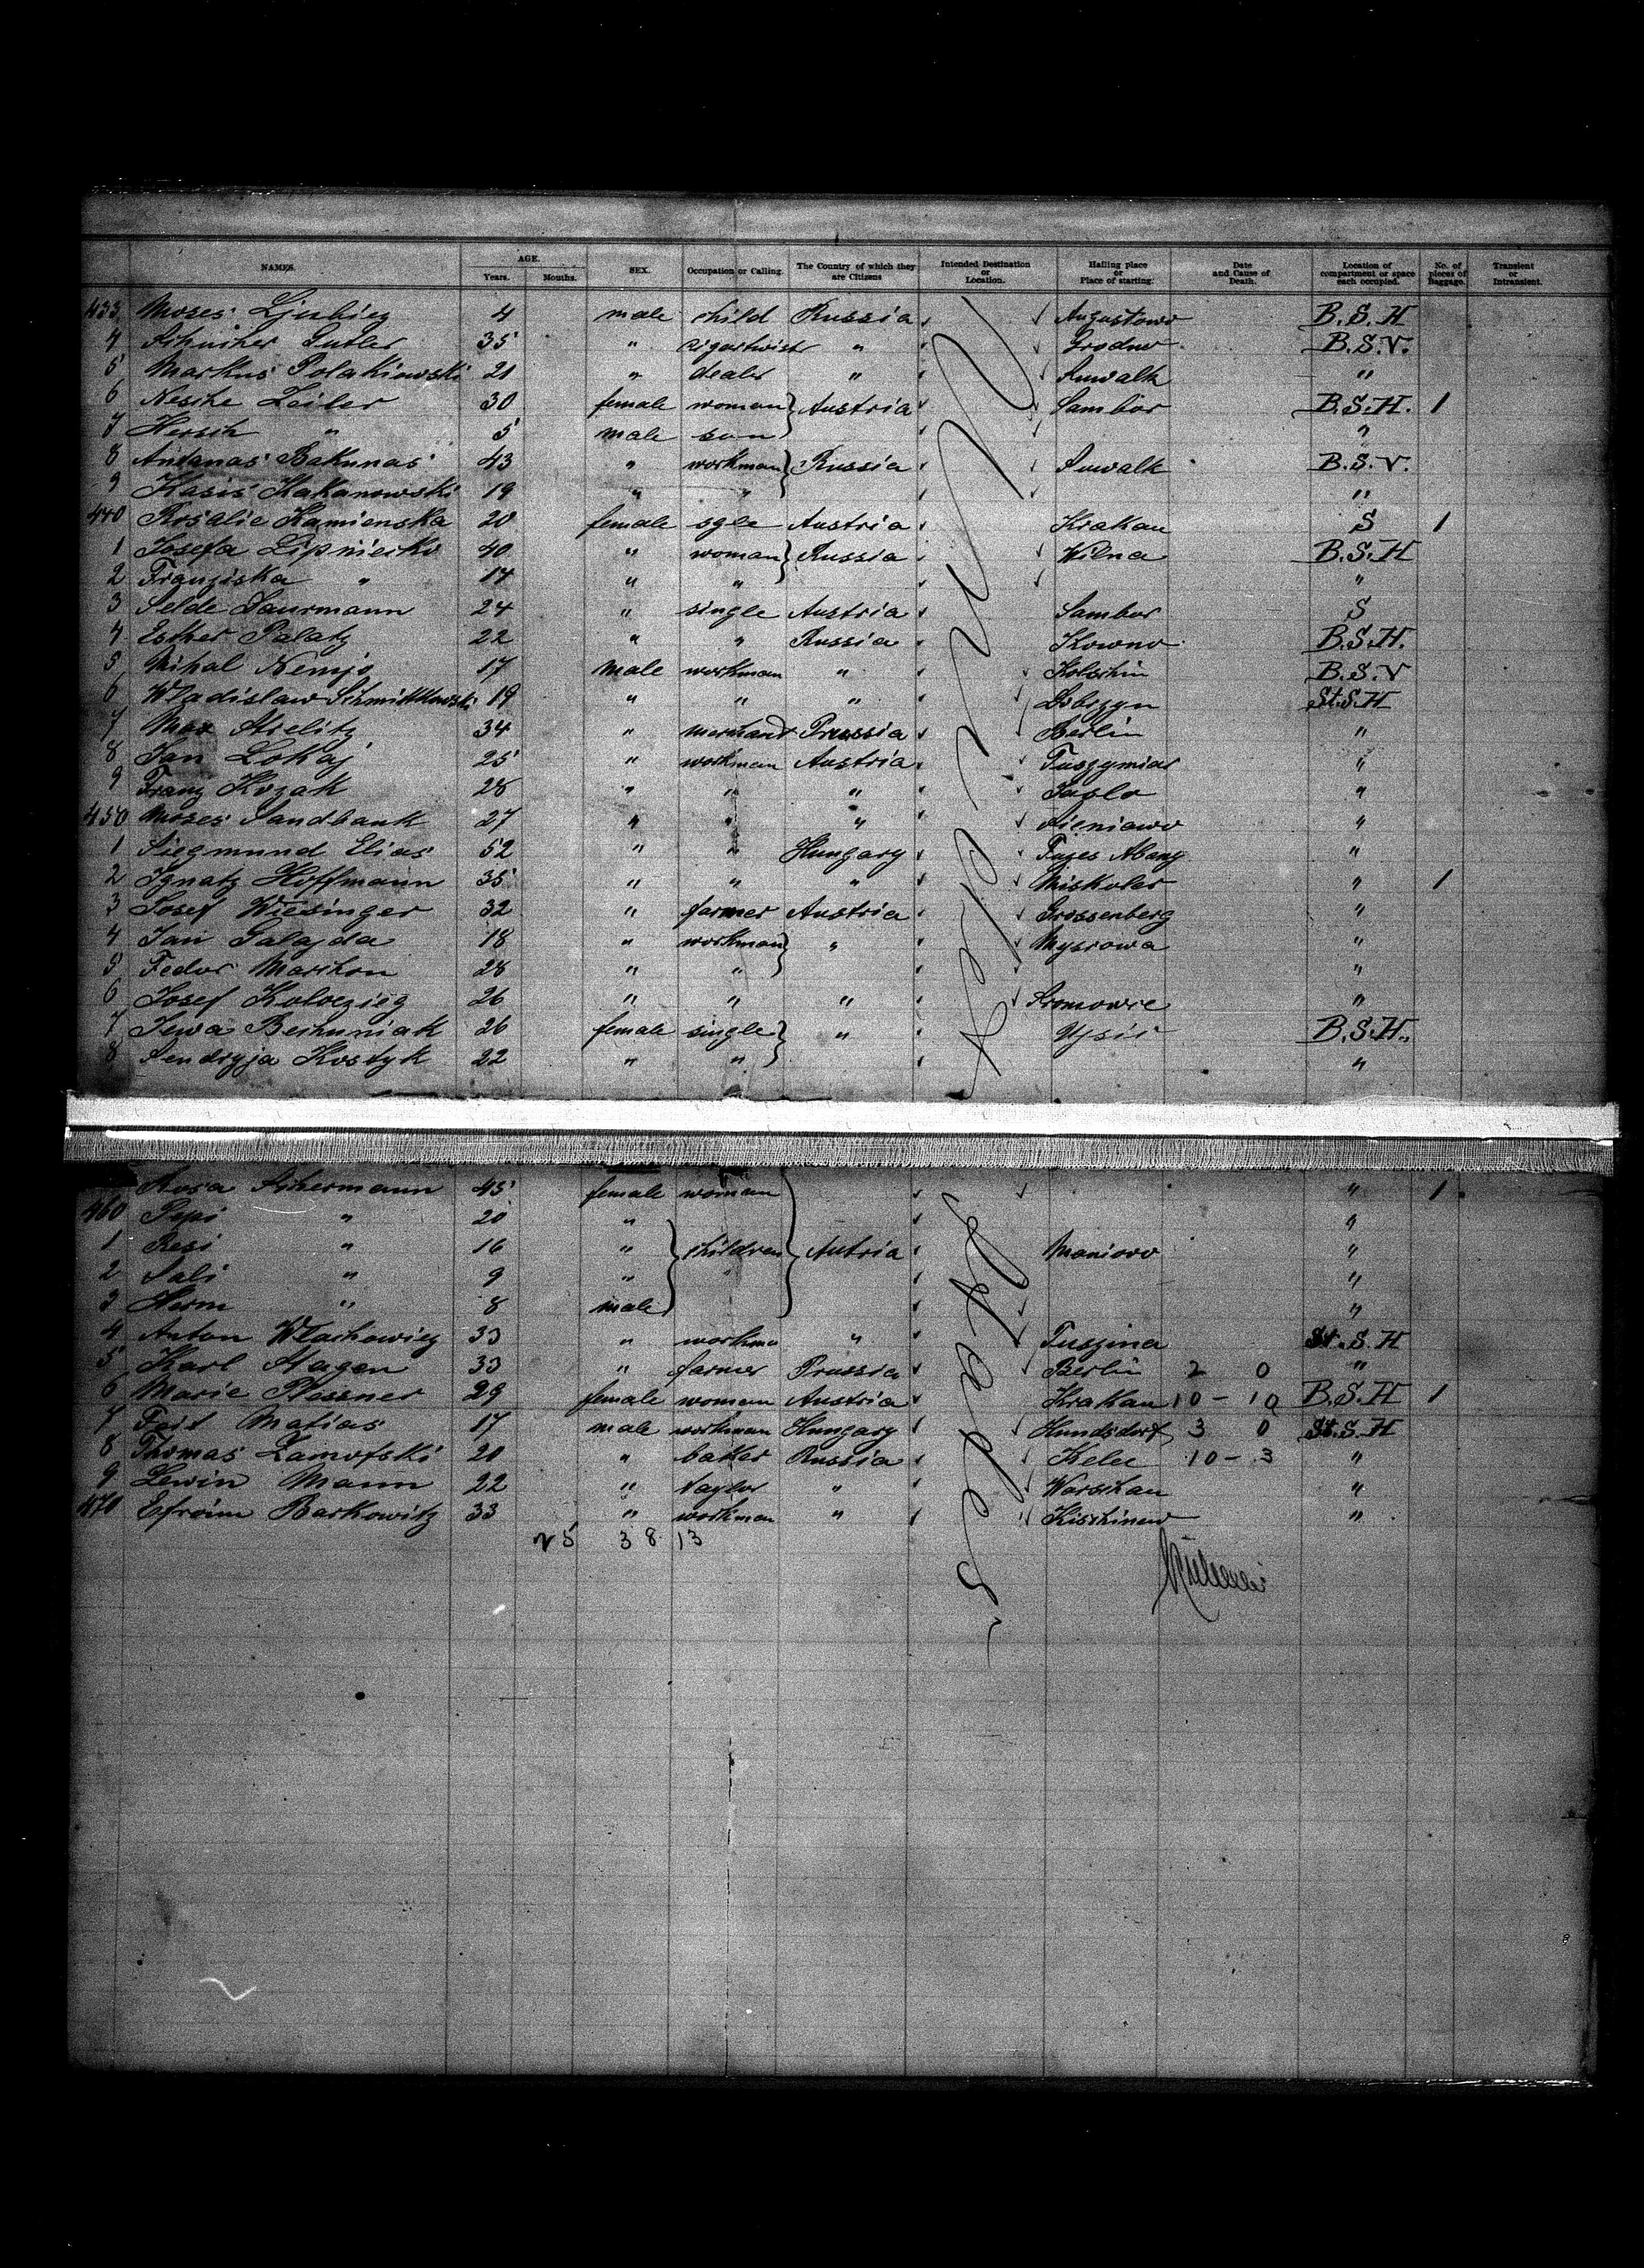 NAMES. AGE. Years. Months. SEX. Occupation or Calling. The Country of which they are Citizens Intended Destination or Location. Hailing place or Place of starting. Date and Cause of Death. Location of compartment or space each occupied. No. of pieces of Baggage. Transient or Intransient.
433 Moses Ljubicz 4 male child Russia Augustowo B.S.H
4 35 " " Grodno B.S.V.
5 Markus Polakiowski 21 " dealer " Suwalk "
6 Neske Zeiler 30 female woman Austria Sambor B.S.H. 1
7 Hersch " 5 male son "
8 Antanas Bakunas 43 " workman Russia Suwalk B.S.V.
9 Kasis Kakanowski 19 " " "
440 Rosalie Kamienska 20 female sgle Austria Krakau S 1
1 Josefa Lipniecko 40 " woman Russia Wilna B.S.H
2 Franziska " 17 " " "
3 Selde Saurmann 24 " single Austria Sambor S
4 Esther Palatz 22 " " Russia Kowno B.S.H.
5 Mihal Nemjo 17 male workman " Kolschin B.S.V
6 Wladislaw 19 " " " Dobrzyn St.S.H
7 Max Stielitz 34 " merchant Prussia Berlin "
8 Jan Lokaj 25 " workman Austria "
9 Franz Kozak 28 " " " Jaslo "
450 Moses Sandbank 27 " " " Sieniawo "
1 Siegmund Elias 52 " " Hungary "
2 Ignatz Hoffmann 35 " " " Miskolcz " 1
3 Josef Wiesinger 32 " farmer Austria Grossenberg "
4 Jan Galajda 18 " workman " Mysrowa "
5 Fedor Marihon 28 " " "
6 Josef Kolvczieg 26 " " " Sromowce "
7 Jewa Beihuniak 26 female single " B.S.H.
8 Sendryja Kostyk 22 " " "
Rosa Schermann 45 female woman " 1
460 Pepi " 20 " "
1 Resi " 16 " children Autria Moniowo "
2 Sali " 9 " "
3 Herm " 8 male "
4 Anton Wlachowicz 33 " workma " Tuszina St.S.H
5 Karl Hagen 33 " farmer Prussia Berlin 2 0 "
6 Marie Plessner 29 female woman Austria Krakau 10 - 10 B.S.H 1
7 Feit Matias 17 male workman Hungary Hundsdorf 3 0 St.S.H
8 Thomas Zamofski 20 " baker Russia Kelee 10 - 3 "
9 Lewin Mann 22 " taylor " Warschau "
470 Efroim Barkowitz 33 " workman " Kischinew "
25 38 13